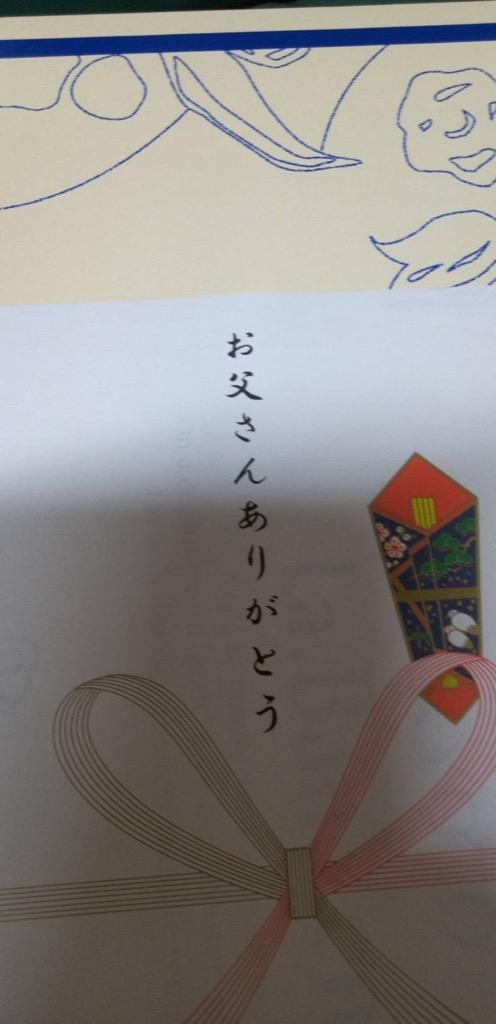 お父さんありがとう